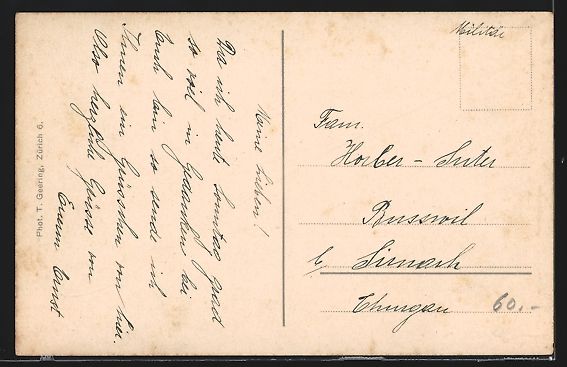 Meine Lieben!
Da ich heute Sonntag grad
so viel in Gedanken bei
Euch bin so sende ich
Ihnen ein Grüsschen von hier.
Also herzliche Grüsse von
Eurem Ernst
Phot. T. Geering, Zürich 6.
Militär
Fam.
Horber - Suter
Busswil
b/ Sirnach
Thurgau
60.-